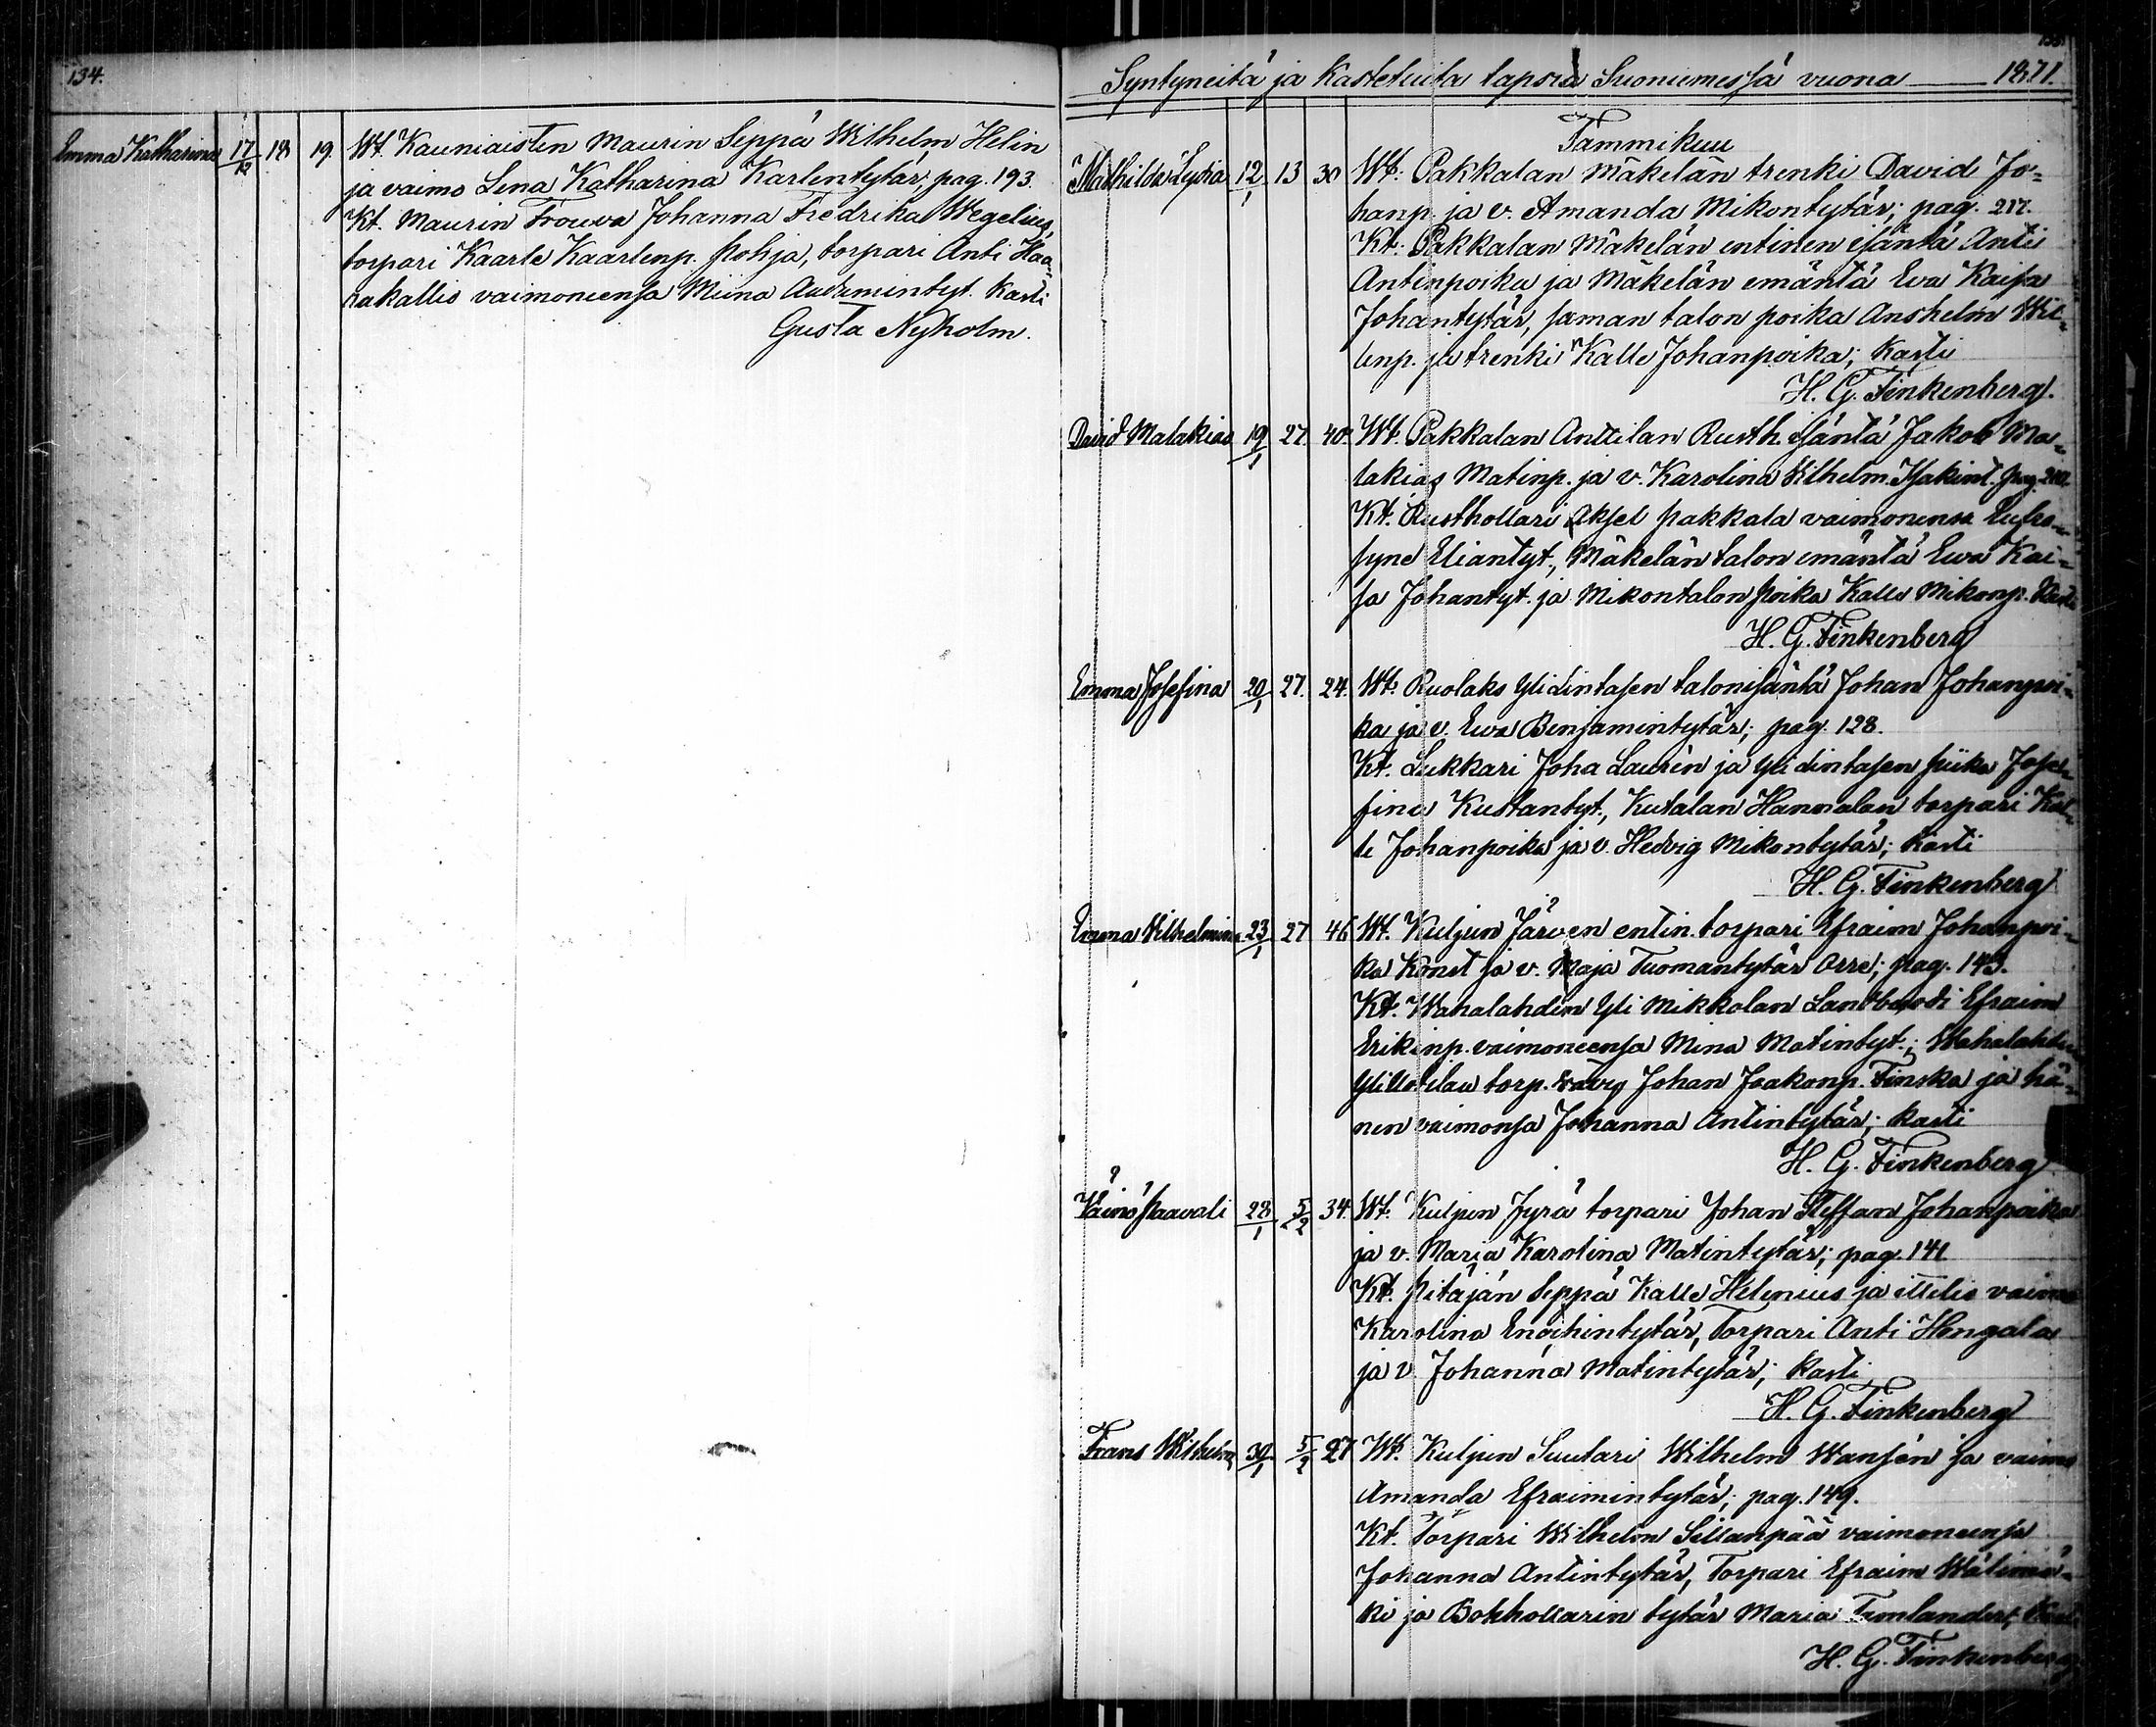 134.
Emma Katharina 17/12 18 19. Wt. Kauniaisten Maurin Seppä Wilhelm Helin
ja vaimo Lena Katharina Karlentytär, pag. 193.
Kt. Maurin Frouva Johanna Fredrika Wegelius,
torpari Kaarle Kaarlenp. Pohja, torpari Anti Haa-
rakallio vaimoneensa Miina Aadamintyt. Kasti
Gusta Nyholm.
Syntyneitä ja Kastetuita lapsia Suoniemessä vuona 1871.
Tammikuu
Mathilda Lydia 12/1 13 30 Wt: Pakkalan Mäkelän trenki David Jo-
hanp. ja v. Amanda Mikontytär; pag. 217.
Kt: Pakkalan Mäkelän entinen isäntä Anti
Antinpoika ja Mäkelän emäntä Eva Kaisa
Johantytär, saman talon poika Anshelm Wil-
lenp. ja trenki Kalle Johanpoika; Kasti
H. G. Finkenberg.
David Malakias 19/1 27. 40. Wt. Pakkalan Anttilan Rusth. isäntä Jakob Ma-
lakias Matinp. ja v. Karolina Wilhelm. Isakint. pag.
Kt. Rusthollari Aksel Pakkala vaimonensa Eufro-
syne Eliantyt., Mäkelän talon emäntä Eva Kai-
sa Johantyt. ja Mikontalon poika Kalle Mikonp. Kasti
H. G. Finkenberg
Emma Josefina 20/1 27. 24. Wt. Ruolaks Ylidintasen talonisäntä Johan Johanpoi-
ka ja v. Eva Benjamintytär; pag. 128.
Kt. Lukkari Joha Laurén ja Ylidintasen piika Jose-
fina Kustantyt., Kutalan Hannalan torpari Kal-
le Johanpoika ja v. Hedvig Mikontytär; Kasti
H. G. Finkenberg
Emma Vilhelmina 23/1 27 46 Wt. Kuljun Järven entin. torpari Efraim Johanpoi-
ka ja v. Maja Tuomantytär Orre; pag. 143.
Kt. Wahalahden Yli Mikkolan Landbuodi Efraim
Erikinp. vaimoneensa Mina Matintyt.; Wahalahden
torp. Johan Jaakonp. Finska ja hä-
nen vaimonsa Johanna Antintytär; Kasti
H. G. Finkenberg
Väinö Paavali 28/1 5/2 34. Wt. Kuljun Jyrä torpari Johan Steffan Johanpoika
ja v. Maria Karolina Matintytär; pag. 141
Kt. Pitäjän Seppä Kalle Helenius ja ittelis vaimo
Karolina Engihintytär, Torpari Anti Hongala
ja v. Johanna Matintytär; Kasti
H. G. Finkenberg
Frans Wilhelm 30/1 5/2 27 Wt. Kuljun Suutari Wilhelm Wansén ja vaimo
Amanda Efraimintytär; pag. 149.
Kt. Torpari Wilhelm Sillanpää vaimoneensa
Johanna Antintytär, Torpari Efraim Wälimä-
ki ja Bokhollarin tytär Maria Temlander, Kasti
H. G. Finkenberg